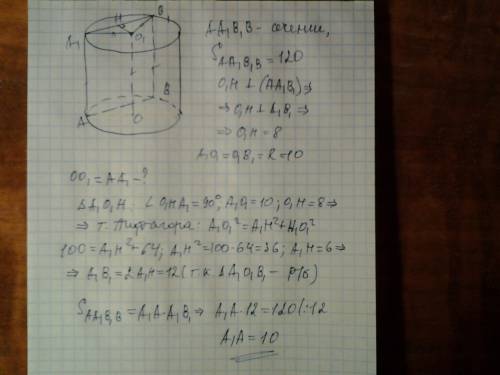 H
B₁
A₁
O₁
B
A
O
AA₁B₁B - сечение,
S AA₁B₁B = 120
O₁H ⊥ (AA₁B₁) ⇒
⇒ O₁H ⊥ A₁B₁ ⇒
⇒ O₁H = 8
A₁O₁ = O₁B₁ = R = 10
OO₁ = AA₁ - ?
Δ A₁O₁H. ∠ O₁HA₁ = 90°, A₁O₁ = 10; O₁H = 8 ⇒
⇒ т. Пифагора: A₁O₁² = A₁H² + HO₁²
100 = A₁H² + 64; A₁H² = 100 - 64 = 36; A₁H = 6 ⇒
⇒ A₁B₁ = 2A₁H = 12 (т.к. Δ A₁O₁B₁ - р/б)
S AA₁B₁B = A₁A · A₁B₁ ⇒ A₁A · 12 = 120 | : 12
A₁A = 10